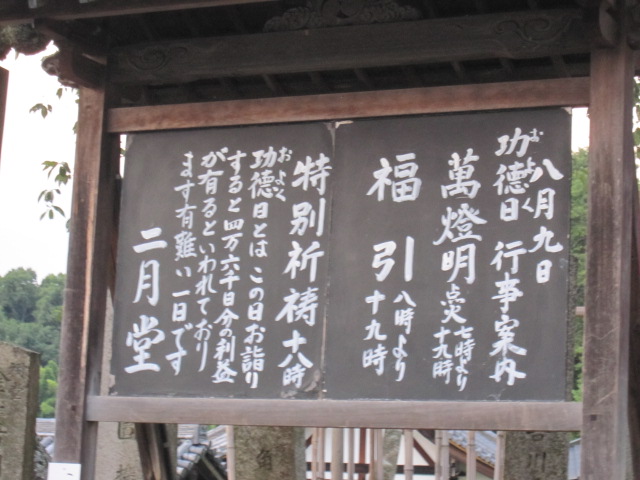 八月九日
功徳日 行事案内
およく
萬燈明 点火 七時より
十九時
福引 八時より
十九時
特別祈祷 十八時
功徳日とはこの日お詣り
およく
すると四万六千日分の利益
が有るといわれており
ます有難い一日です
二月堂